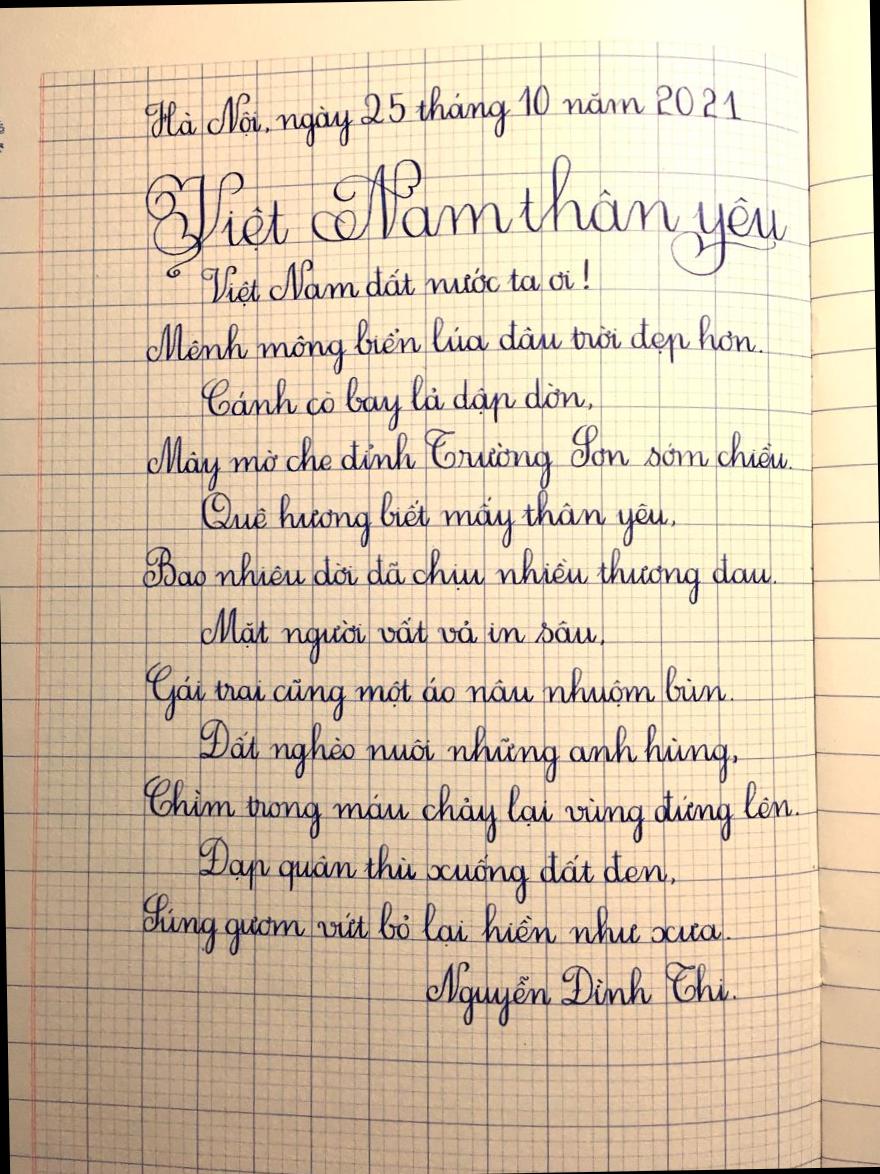 Hà Nội, ngày 25 tháng 10 năm 2021
Việt Nam thân yêu
Việt Nam đất nước ta ơi!
Mênh mông biển lúa đâu trời đẹp hơn.
Cánh cò bay lả dập dờn,
Mây mờ che đỉnh Trường Sơn sớm chiều.
Quê hương biết mấy thân yêu,
Bao nhiêu đời đã chịu nhiều thương đau.
Mặt người vất vả in sâu,
Gái trai cũng một áo nâu nhuộm bùn.
Đất nghèo nuôi những anh hùng,
Chìm trong máu chảy lại vùng đứng lên.
Đạp quân thù xuống đất đen,
Súng gươm vứt bỏ lại hiền như xưa.
Nguyễn Đình Thi.